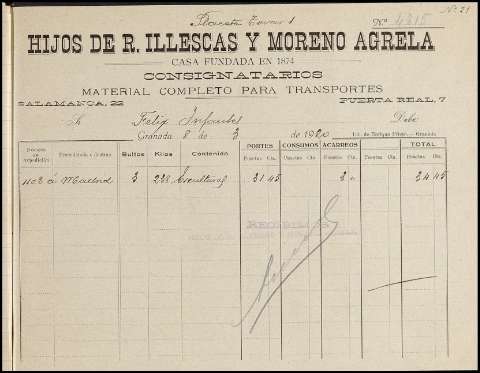 Nº 21
Placeta Tovar 1
Nº 4215
HIJOS DE R. ILLESCAS Y MORENO AGRELA
CASA FUNDADA EN 1874
CONSIGNATARIOS
MATERIAL COMPLETO PARA TRANSPORTES
SALAMANCA, 22 PUERTA REAL, 7
D. Felix Infantes Debe
Granada 8 de 3 de 1920
Número de expedición Procedencia o destino Bultos Kilos Contenido PORTES CONSUMOS ACARREOS TOTAL
Pesetas Cts. Pesetas Cts. Pesetas Cts. Pesetas Cts. Pesetas Cts.
1102 á Madrid 3 Esculturas 31 45 3 34 45
RECIBIMOS